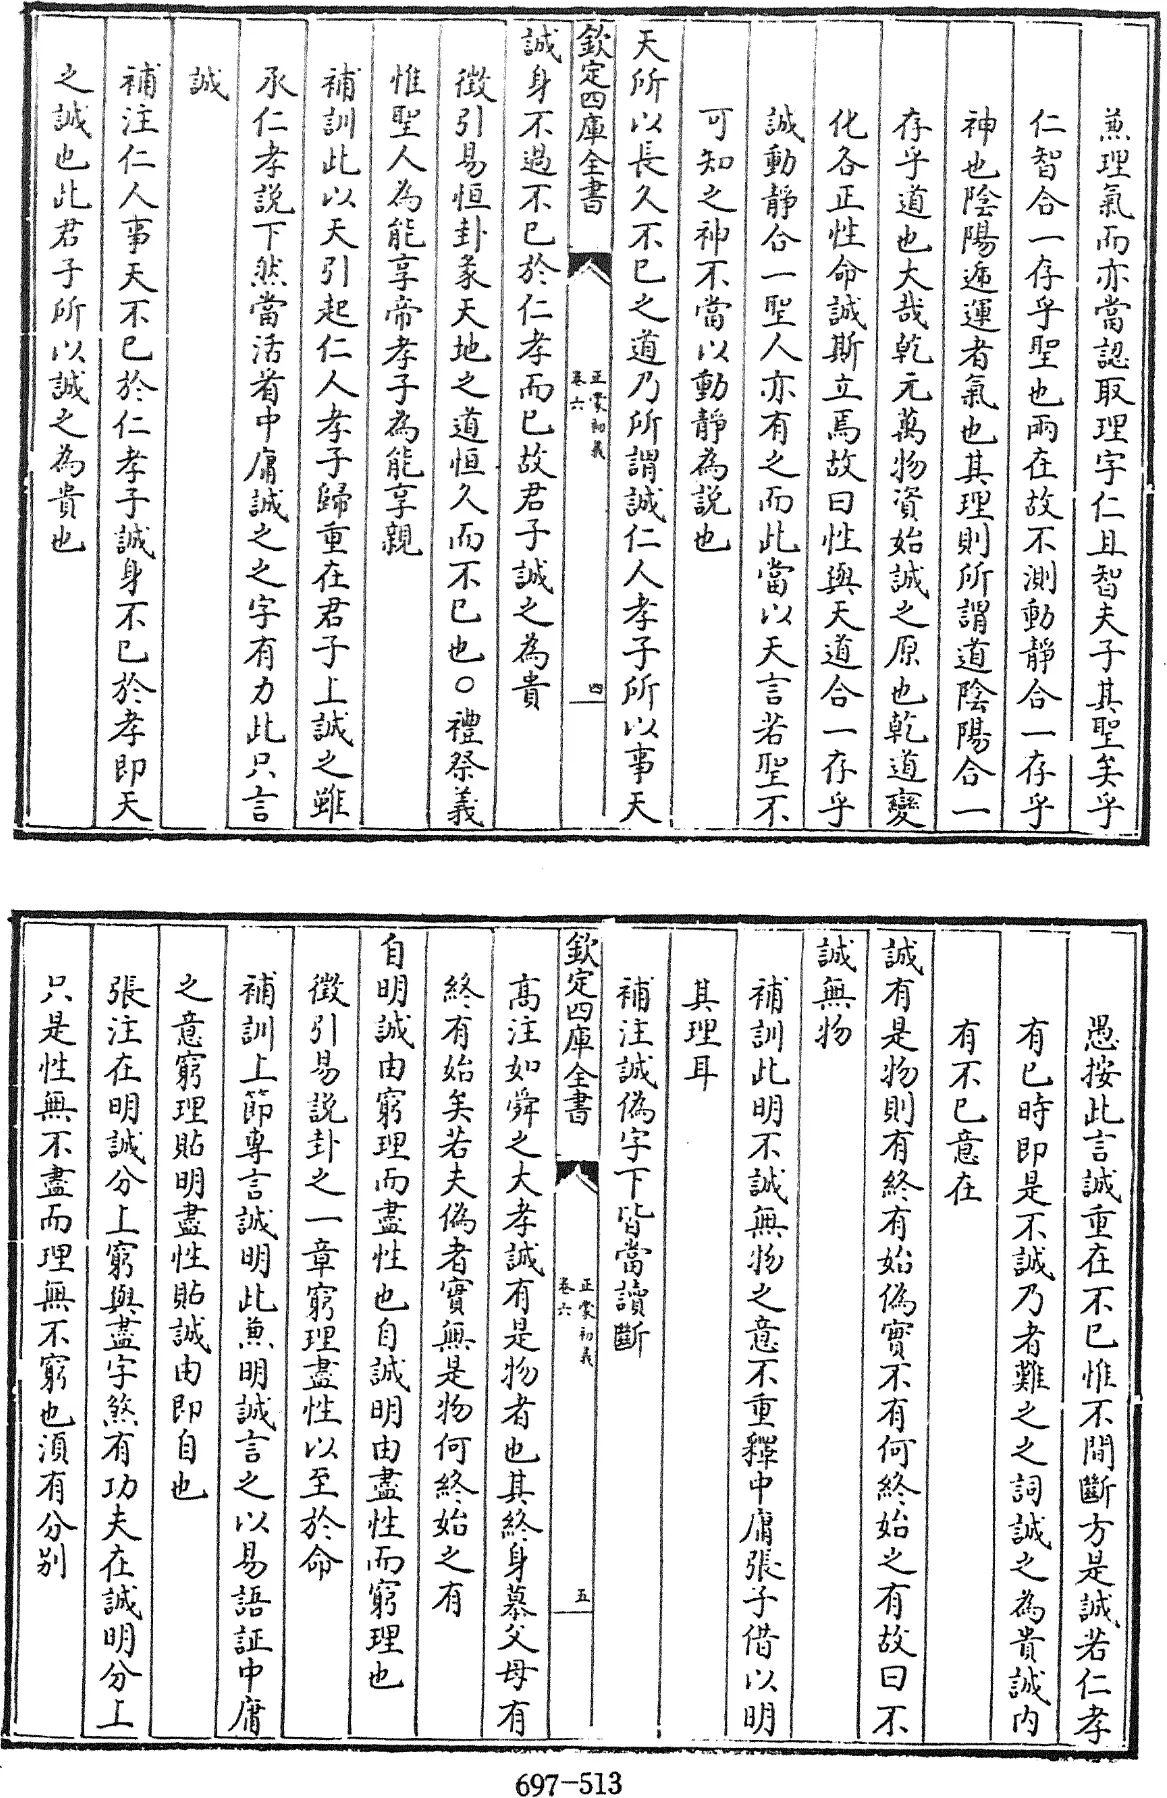 兼理氣而亦當認取理字仁且智夫子其聖矣乎
仁智合一存乎聖也兩在故不測動靜合一存乎
神也陰陽遞運者氣也其理則所謂道陰陽合一
存乎道也大哉乾元萬物資始誠之原也乾道變
化各正性命誠斯立焉故曰性與天道合一存乎
誠動靜合一聖人亦有之而此當以天言若聖不
可知之神不當以動靜為說也
天所以長久不已之道乃所謂誠仁人孝子所以事天
欽定四庫全書
正蒙初義
卷六
四
誠身不過不已於仁孝而已故君子誠之為貴
徵引易恒卦彖天地之道恒久而不已也○禮祭義
惟聖人為能享帝孝子為能享親
補訓此以天引起仁人孝子歸重在君子上誠之雖
承仁孝說下然當活看中庸誠之之字有力此只言
誠
補注仁人事天不已於仁孝子誠身不已於孝即天
之誠也此君子所以誠之為貴也
愚按此言誠重在不已惟不間斷方是誠若仁孝
有已時即是不誠乃者難之之詞誠之為貴誠內
有不已意在
誠有是物則有終有始偽實不有何終始之有故曰不
誠無物
補訓此明不誠無物之意不重釋中庸張子借以明
其理耳
補注誠偽字下皆當讀斷
欽定四庫全書
正蒙初義
卷六
五
高注如舜之大孝誠有是物者也其終身慕父母有
終有始矣若夫偽者實無是物何終始之有
自明誠由窮理而盡性也自誠明由盡性而窮理也
徵引易說卦之一章窮理盡性以至於命
補訓上節專言誠明此兼明誠言之以易語証中庸
之意窮理貼明盡性貼誠由即自也
張注在明誠分上窮與盡字煞有功夫在誠明分上
只是性無不盡而理無不窮也須有分別
697-513